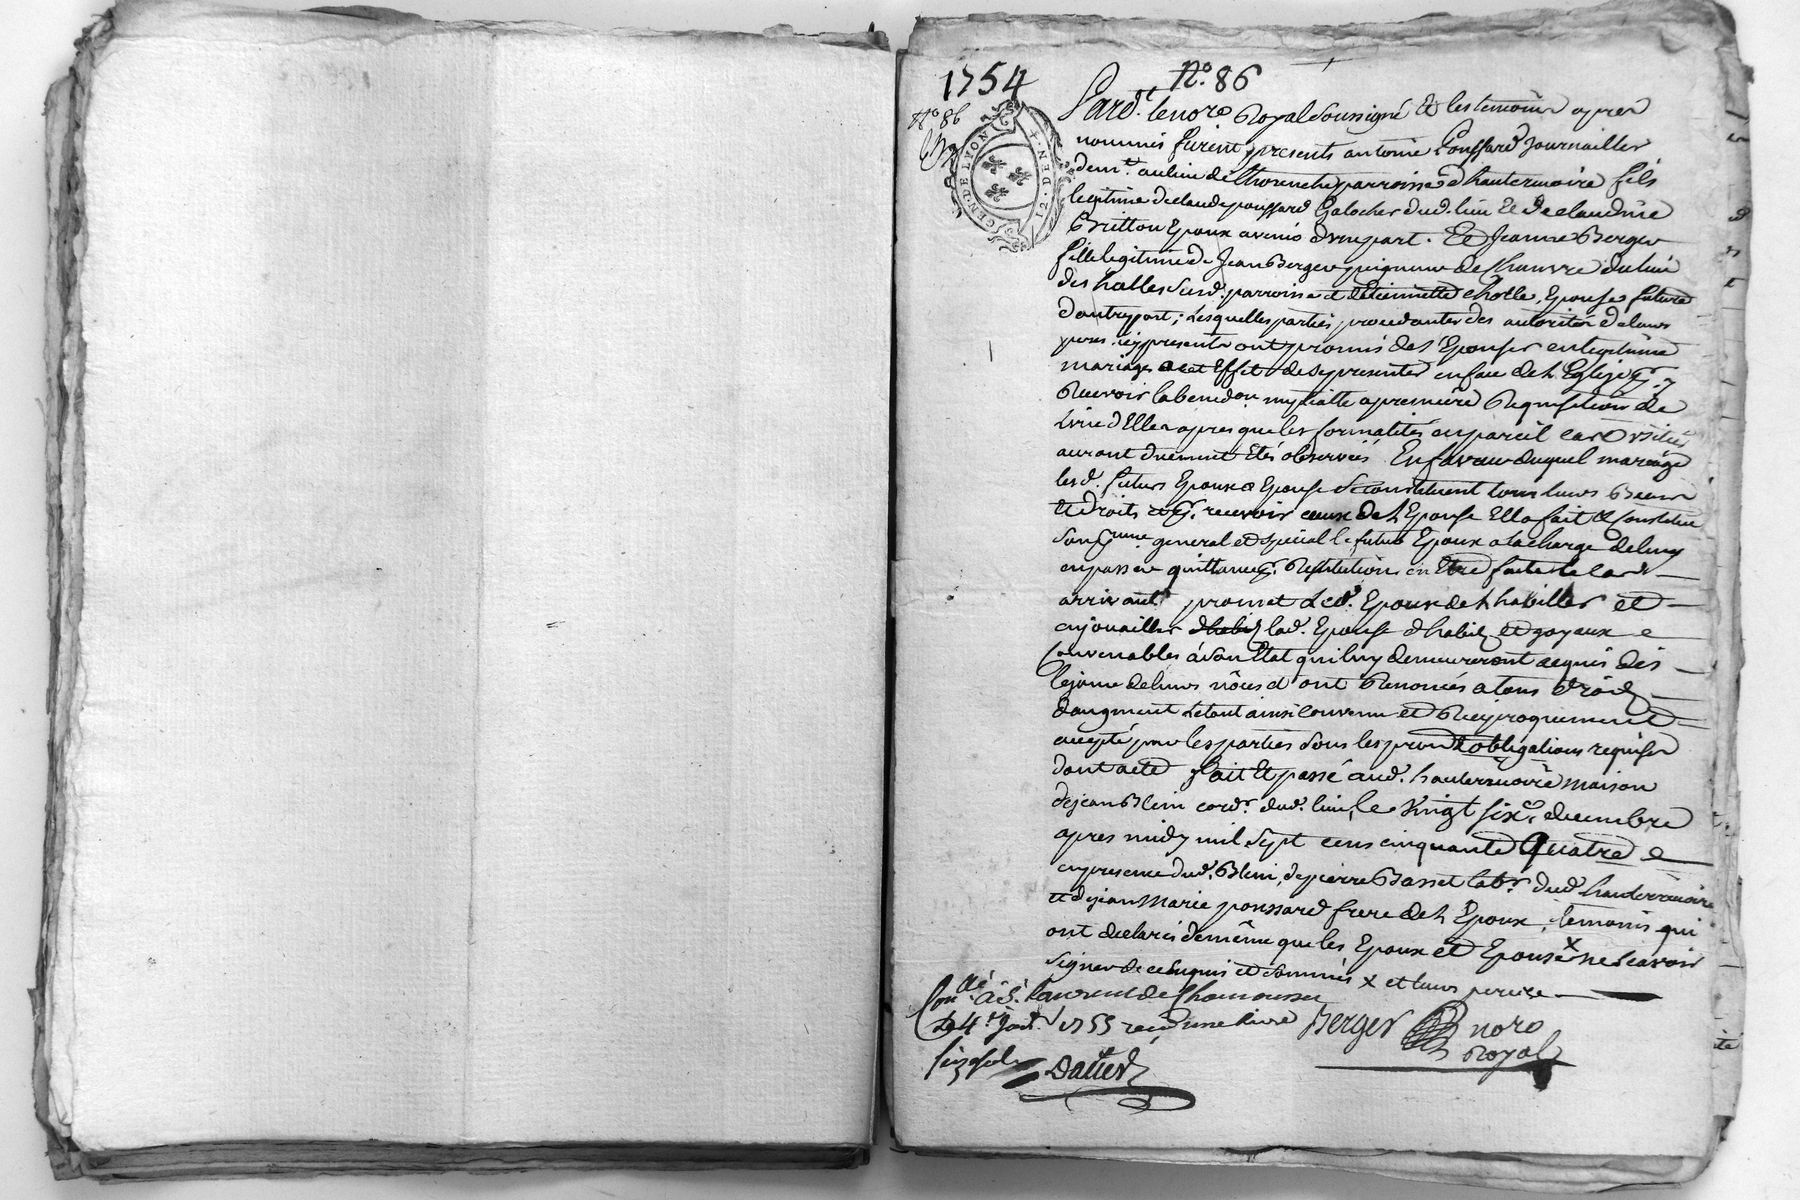 1754
N.o 86
N.o 86
GEN. DE LYON
12. DEN.
Pard.t le no.re Royal Soussigné et les temoins apres
nommés furent presents antoine Poussard Journaillier
dem.t au lieu de Thorenche parroisse d'hauterivoire fils
legitime de claude poussard Galocher dud. lieu et de claudine
Britton Epoux avenir d'une part. Et Jeanne Berger
fille legitime de Jean Berger peigneur de Chanvre du lieu
des halles Susd. parroisse et d'Etiennette cholle, Epouse future
d'autre part; Lesquelles parties procedantes des autorités de leurs
peres icy presents ont promis de s'Epouser en legitime
mariage a cet Effet de se presenter en face de L'Eglise p.r y
Recevoir la bened.on nuptialle a premiere Requisition de
L'une d'Elles apres que les formalités en pareil cas Usitées
auront duement Etés observées. En faveur duquel mariage
lesd. futurs Epoux & Epouse Se constituent tous leurs Biens
et droits et p.r recevoir ceux de L'Epouse Elle fait & constitue
Son general et special le futur Epoux a la charge de luy
en passer quittance p.r Restitution en Etre faite le cas
arrivant promet Led. Epoux de L habiller et
enjouailler lad. Epouse d'habits et joyaux
Convenables à Son Etat qui luy demeureront acquis dès
le jour de leurs nôces et ont Renoncés a tous droits
d'augment Le tout ainsi convenu et Reciproquement
accepté par les parties Sous les prom. & obligations requises
dont acte fait Et passé aud. hauterivoire maison
de jean Blein cord.r dud. lieu, le Vingt six.e decembre
apres midy mil Sept cens cinquante Quatre
en presence dud. Blein, de pierre Basset lab.r dud. hauterivoire
et de jean Marie poussard frere de L'Epoux, temoins qui
ont declarés de même que les Epoux et Epouse x ne Scavoir
Signer de ce Enquis et Sommés x et leurs peres
Con.llé à S.t Laurent de Chamousset
le 4.e Janv. 1755 recu une livre
Berger
no.re
Royal